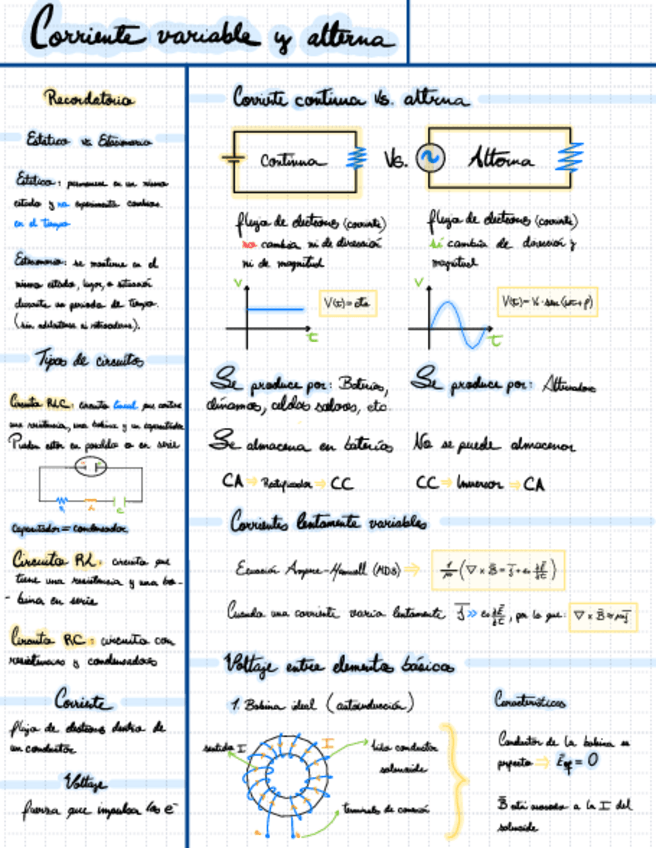 Corriente variable y alterna
Recordatorio
Estático vs Estacionario
Estático: permanece en un mismo
estado y no experimenta cambios
en el tiempo
Estacionario: se mantiene en el
mismo estado, lugar, o situación
durante un periodo de tiempo.
(sin adelantarse ni retrocederse).
Tipos de circuitos
Circuito RLC: circuito lineal que contiene
una resistencia, una bobina y un capacitador
Pueden estar en paralelo o en serie
R L C
Capacitador = condensador
Circuito RL: circuito que
tiene una resistencia y una bo-
- bina en serie
Circuito RC: circuito con
resistencias y condensadores
Corriente
flujo de electrones dentro de
un conductor
Voltaje
fuerza que impulsa los e⁻
Corriente continua Vs. alterna
Continua Vs. Alterna
flujo de electrons (corriente)
no cambia ni de dirección
ni de magnitud
flujo de electrons (corriente)
si cambia de dirección y
magnitud
V
V(t) = cte
t
V
V(t) = V· sen (ωt + φ)
t
Se produce por: Baterías,
dínamos, celdas solares, etc.
Se produce por: Alternadores
Se almacena en baterías
No se puede almacenar
CA ⇒ Rectificador ⇒ CC
CC ⇒ Inversor ⇒ CA
Corrientes lentamente variables
Ecuación Ampere-Maxwell (MDS) ⇒ 1/μ (∇ × B̄ = J̄ + ε₀ ∂Ē/∂t)
Cuando una corriente varia lentamente J̄ >> ε₀ ∂Ē/∂t, por lo que: ∇ × B̄ ≈ μJ̄
Voltaje entre elementos básicos
1. Bobina ideal (autoinducción)
sentido I
I
hilo conductor
solenoide
terminales de conexión
Características
Conductor de la bobina es
perfecto ⇒ = 0
B̄ está asociado a la I del
solenoide